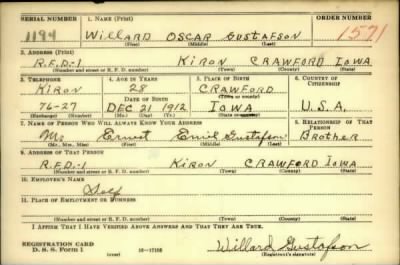 SERIAL NUMBER 1. NAME (Print) ORDER NUMBER
1194 WILLARD OSCAR GUSTAFSON 1571
(First) (Middle) (Last)
2. ADDRESS (Print)
R.F.D.-1 KIRON CRAWFORD IOWA
(Number and street or R. F. D. number) (Town) (County) (State)
3. TELEPHONE 4. AGE IN YEARS 5. PLACE OF BIRTH 6. COUNTRY OF CITIZENSHIP
KIRON 28 CRAWFORD
DATE OF BIRTH (Town or county)
76-27 DEC 21 1912 IOWA U.S.A.
(Exchange) (Number) (Mo.) (Day) (Yr.) (State or country)
7. NAME OF PERSON WHO WILL ALWAYS KNOW YOUR ADDRESS 8. RELATIONSHIP OF THAT PERSON
Mr. Ernest Emil Gustafson Brother
(Mr., Mrs., Miss) (First) (Middle) (Last)
9. ADDRESS OF THAT PERSON
R.F.D.-1 KIRON CRAWFORD IOWA
(Number and street or R. F. D. number) (Town) (County) (State)
10. EMPLOYER'S NAME
Self
11. PLACE OF EMPLOYMENT OR BUSINESS
(Number and street or R. F. D. number) (Town) (County) (State)
I AFFIRM THAT I HAVE VERIFIED ABOVE ANSWERS AND THAT THEY ARE TRUE.
REGISTRATION CARD
D. S. S. Form 1 16-17105 Willard Gustafson
(over) (Registrant's signature)